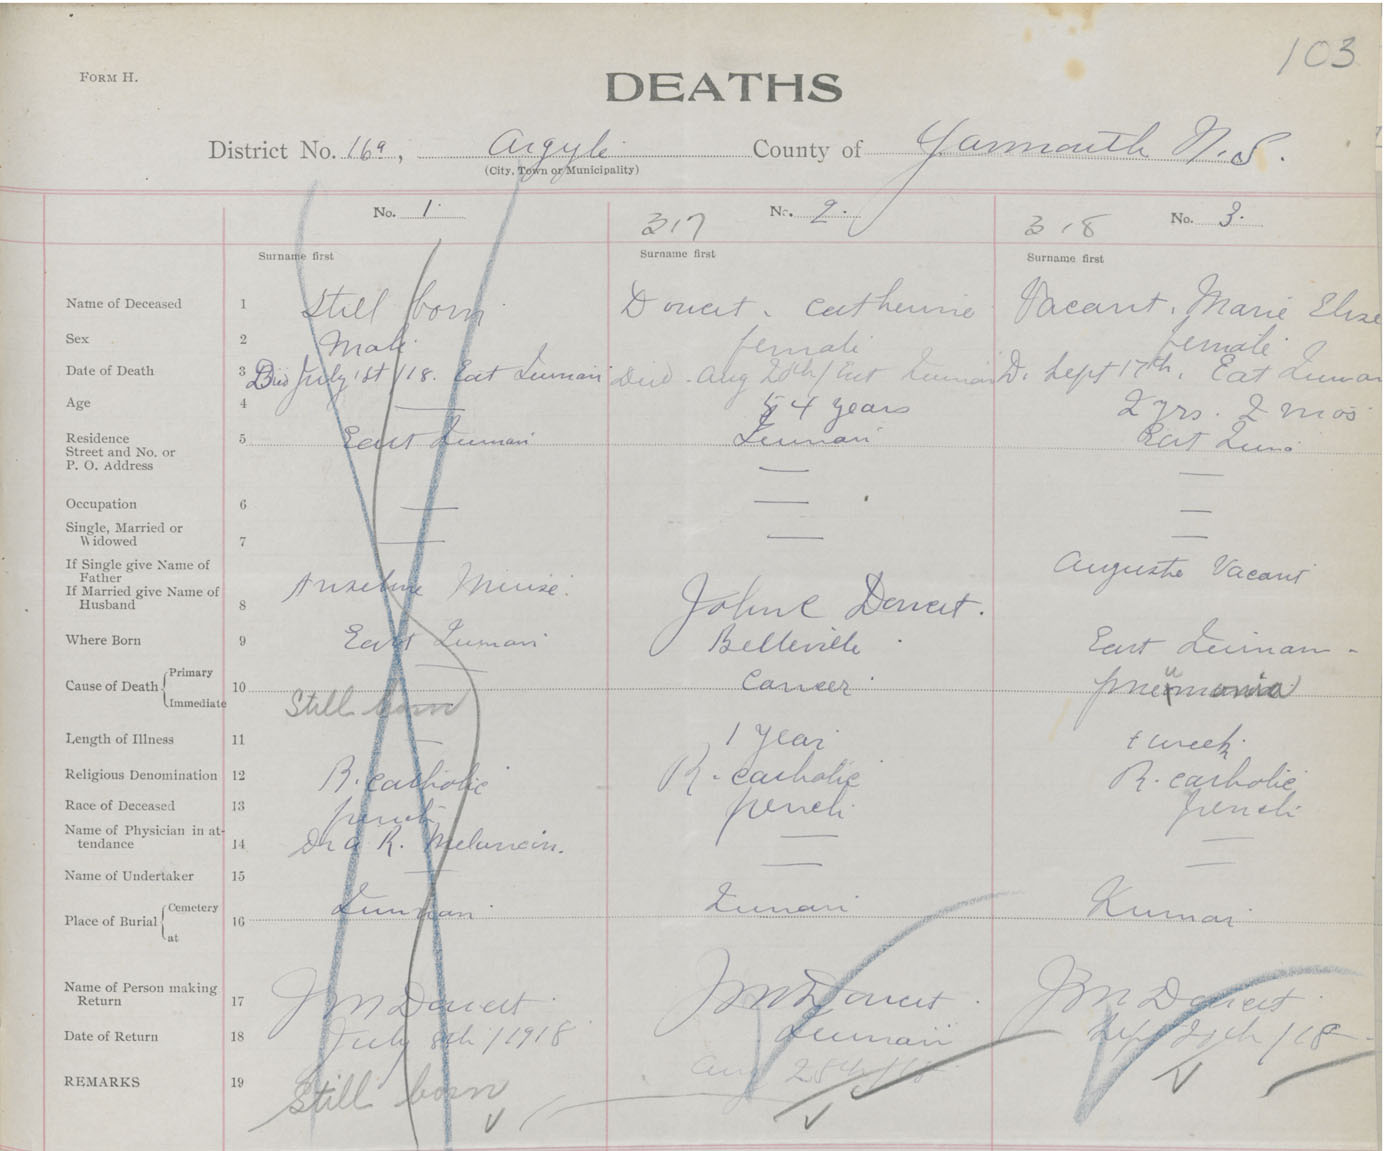 103
FORM H.
DEATHS
District No. 16a, Argyle County of Yarmouth N.S.
(City, Town or Municipality)
No. 1. 317 No. 2. 318 No. 3.
Surname first Surname first Surname first
Name of Deceased 1 Still born Doucet. Catherine Vacant. Marie Elise
Sex 2 Male female female
Date of Death 3 Died July 1st /18. East Died. Aug 28th / East D. Sept 17th. East
Age 4 — 54 years 2 yrs. 2 mos
Residence 5 East East
Street and No. or
P. O. Address — —
Occupation 6 — — —
Single, Married or
Widowed 7 — — —
If Single give Name of
Father Auguste Vacant
If Married give Name of Anselme
Husband 8 John C Doucet.
Where Born 9 East Belleville East
Cause of Death Primary — Cancer. pneumonia
10
Immediate Still born
Length of Illness 11 — 1 year 1 week
Religious Denomination 12 R. catholic R. catholic R. catholic
Race of Deceased 13 french french french
Name of Physician in at-
tendance 14 Dr A R. — —
Name of Undertaker 15 — — —
Place of Burial Cemetery
16
at
Name of Person making
Return 17 J M Doucet J M Doucet. J M Doucet
Date of Return 18 July 8th / 1918 Sept /18
Aug 28th/18
REMARKS 19 Still born